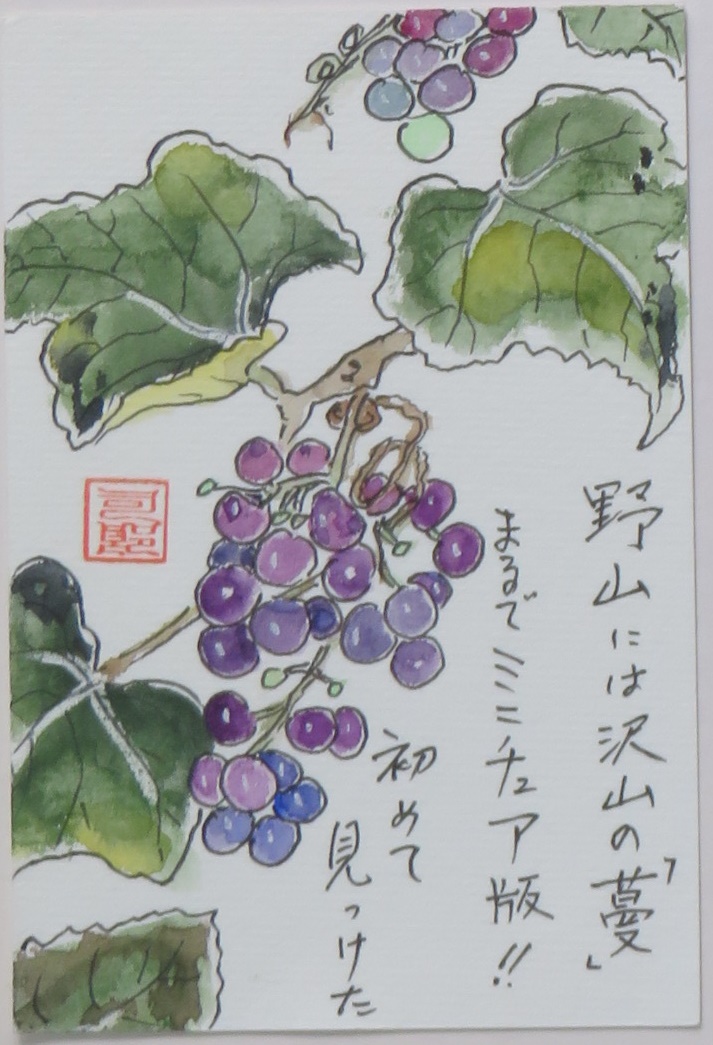 野山には沢山の「蔓」
まるでミニチュア版!!
初めて
見つけた